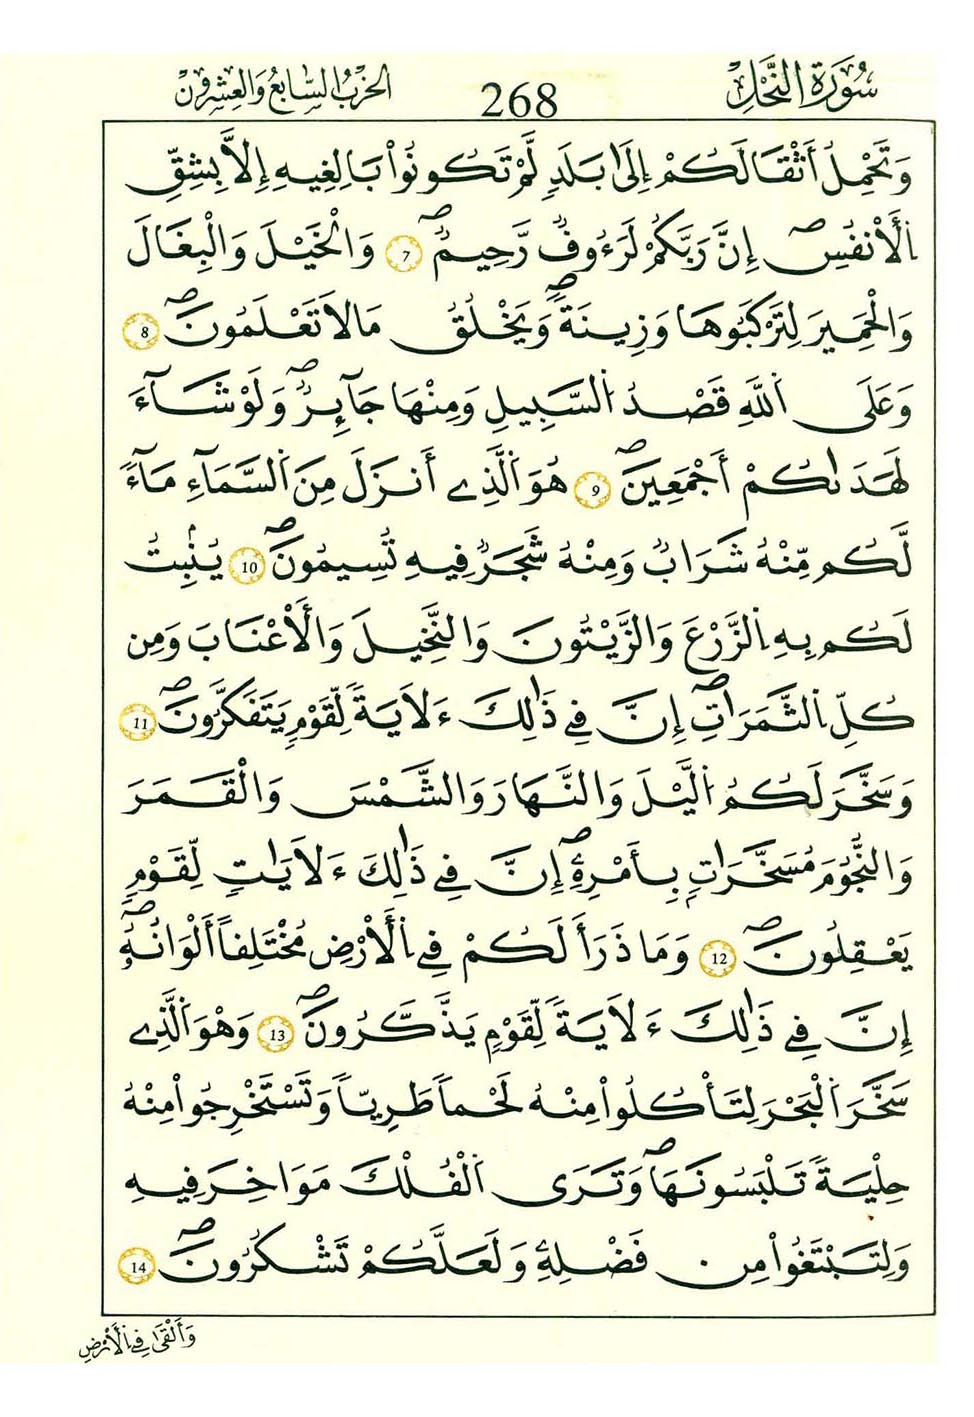 سُورَةُ النَّحْلِ 268 الحِزْبُ السَّابِعُ وَالْعِشْرُونَ
وَتَحْمِلُ أَثْقَالَكُمْ إِلَىٰ بَلَدٍ لَّمْ تَكُونُواْ بَالِغِيهِ إِلاَّ بِشِقِّ
اِ۬لَانفُسِۖ إِنَّ رَبَّكُمْ لَرَءُوفٞ رَّحِيمٞۖ 7 وَالْخَيْلَ وَالْبِغَالَ
وَالْحَمِيرَ لِتَرْكَبُوهَا وَزِينَةٗۖ وَيَخْلُقُ مَا لاَ تَعْلَمُونَۖ 8
وَعَلَى اَ۬للَّهِ قَصْدُ اُ۬لسَّبِيلِ وَمِنْهَا جَآئِرٞۖ وَلَوْ شَآءَ
لَهَدَىٰكُمْ أَجْمَعِينَۖ 9 هُوَ اَ۬لَّذِے أَنزَلَ مِنَ اَ۬لسَّمَآءِ مَآءٗ
لَّكُم مِّنْهُ شَرَابٞ وَمِنْهُ شَجَرٞ فِيهِ تُسِيمُونَۖ 10 يُنۢبِتُ
لَكُم بِهِ اِ۬لزَّرْعَ وَالزَّيْتُونَ وَالنَّخِيلَ وَالَاعْنَابَ وَمِن
كُلِّ اِ۬لثَّمَرَٰتِۖ إِنَّ فِے ذَٰلِكَ ءَلَايَةٗ لِّقَوْمٖ يَتَفَكَّرُونَۖ 11
وَسَخَّرَ لَكُمُ اُ۬لَّيْلَ وَالنَّهَارَ وَالشَّمْسَ وَالْقَمَرَ
وَالنُّجُومَ مُسَخَّرَاتِۢ بِأَمْرِهِۦۖ إِنَّ فِے ذَٰلِكَ ءَلَايَٰتٖ لِّقَوْمٖ
يَعْقِلُونَۖ 12 وَمَا ذَرَأَ لَكُمْ فِے اِ۬لَارْضِ مُخْتَلِفاً أَلْوَانُهُۥۖ
إِنَّ فِے ذَٰلِكَ ءَلَايَةٗ لِّقَوْمٖ يَذَّكَّرُونَۖ 13 وَهْوَ اَ۬لَّذِے
سَخَّرَ اَ۬لْبَحْرَ لِتَأْكُلُواْ مِنْهُ لَحْماٗ طَرِيّاٗ وَتَسْتَخْرِجُواْ مِنْهُ
حِلْيَةٗ تَلْبَسُونَهَاۖ وَتَرَى اَ۬لْفُلْكَ مَوَاخِرَ فِيهِ
وَلِتَبْتَغُواْ مِن فَضْلِهِۦ وَلَعَلَّكُمْ تَشْكُرُونَۖ 14
وَأَلْقَىٰ فِے اِ۬لَارْضِ